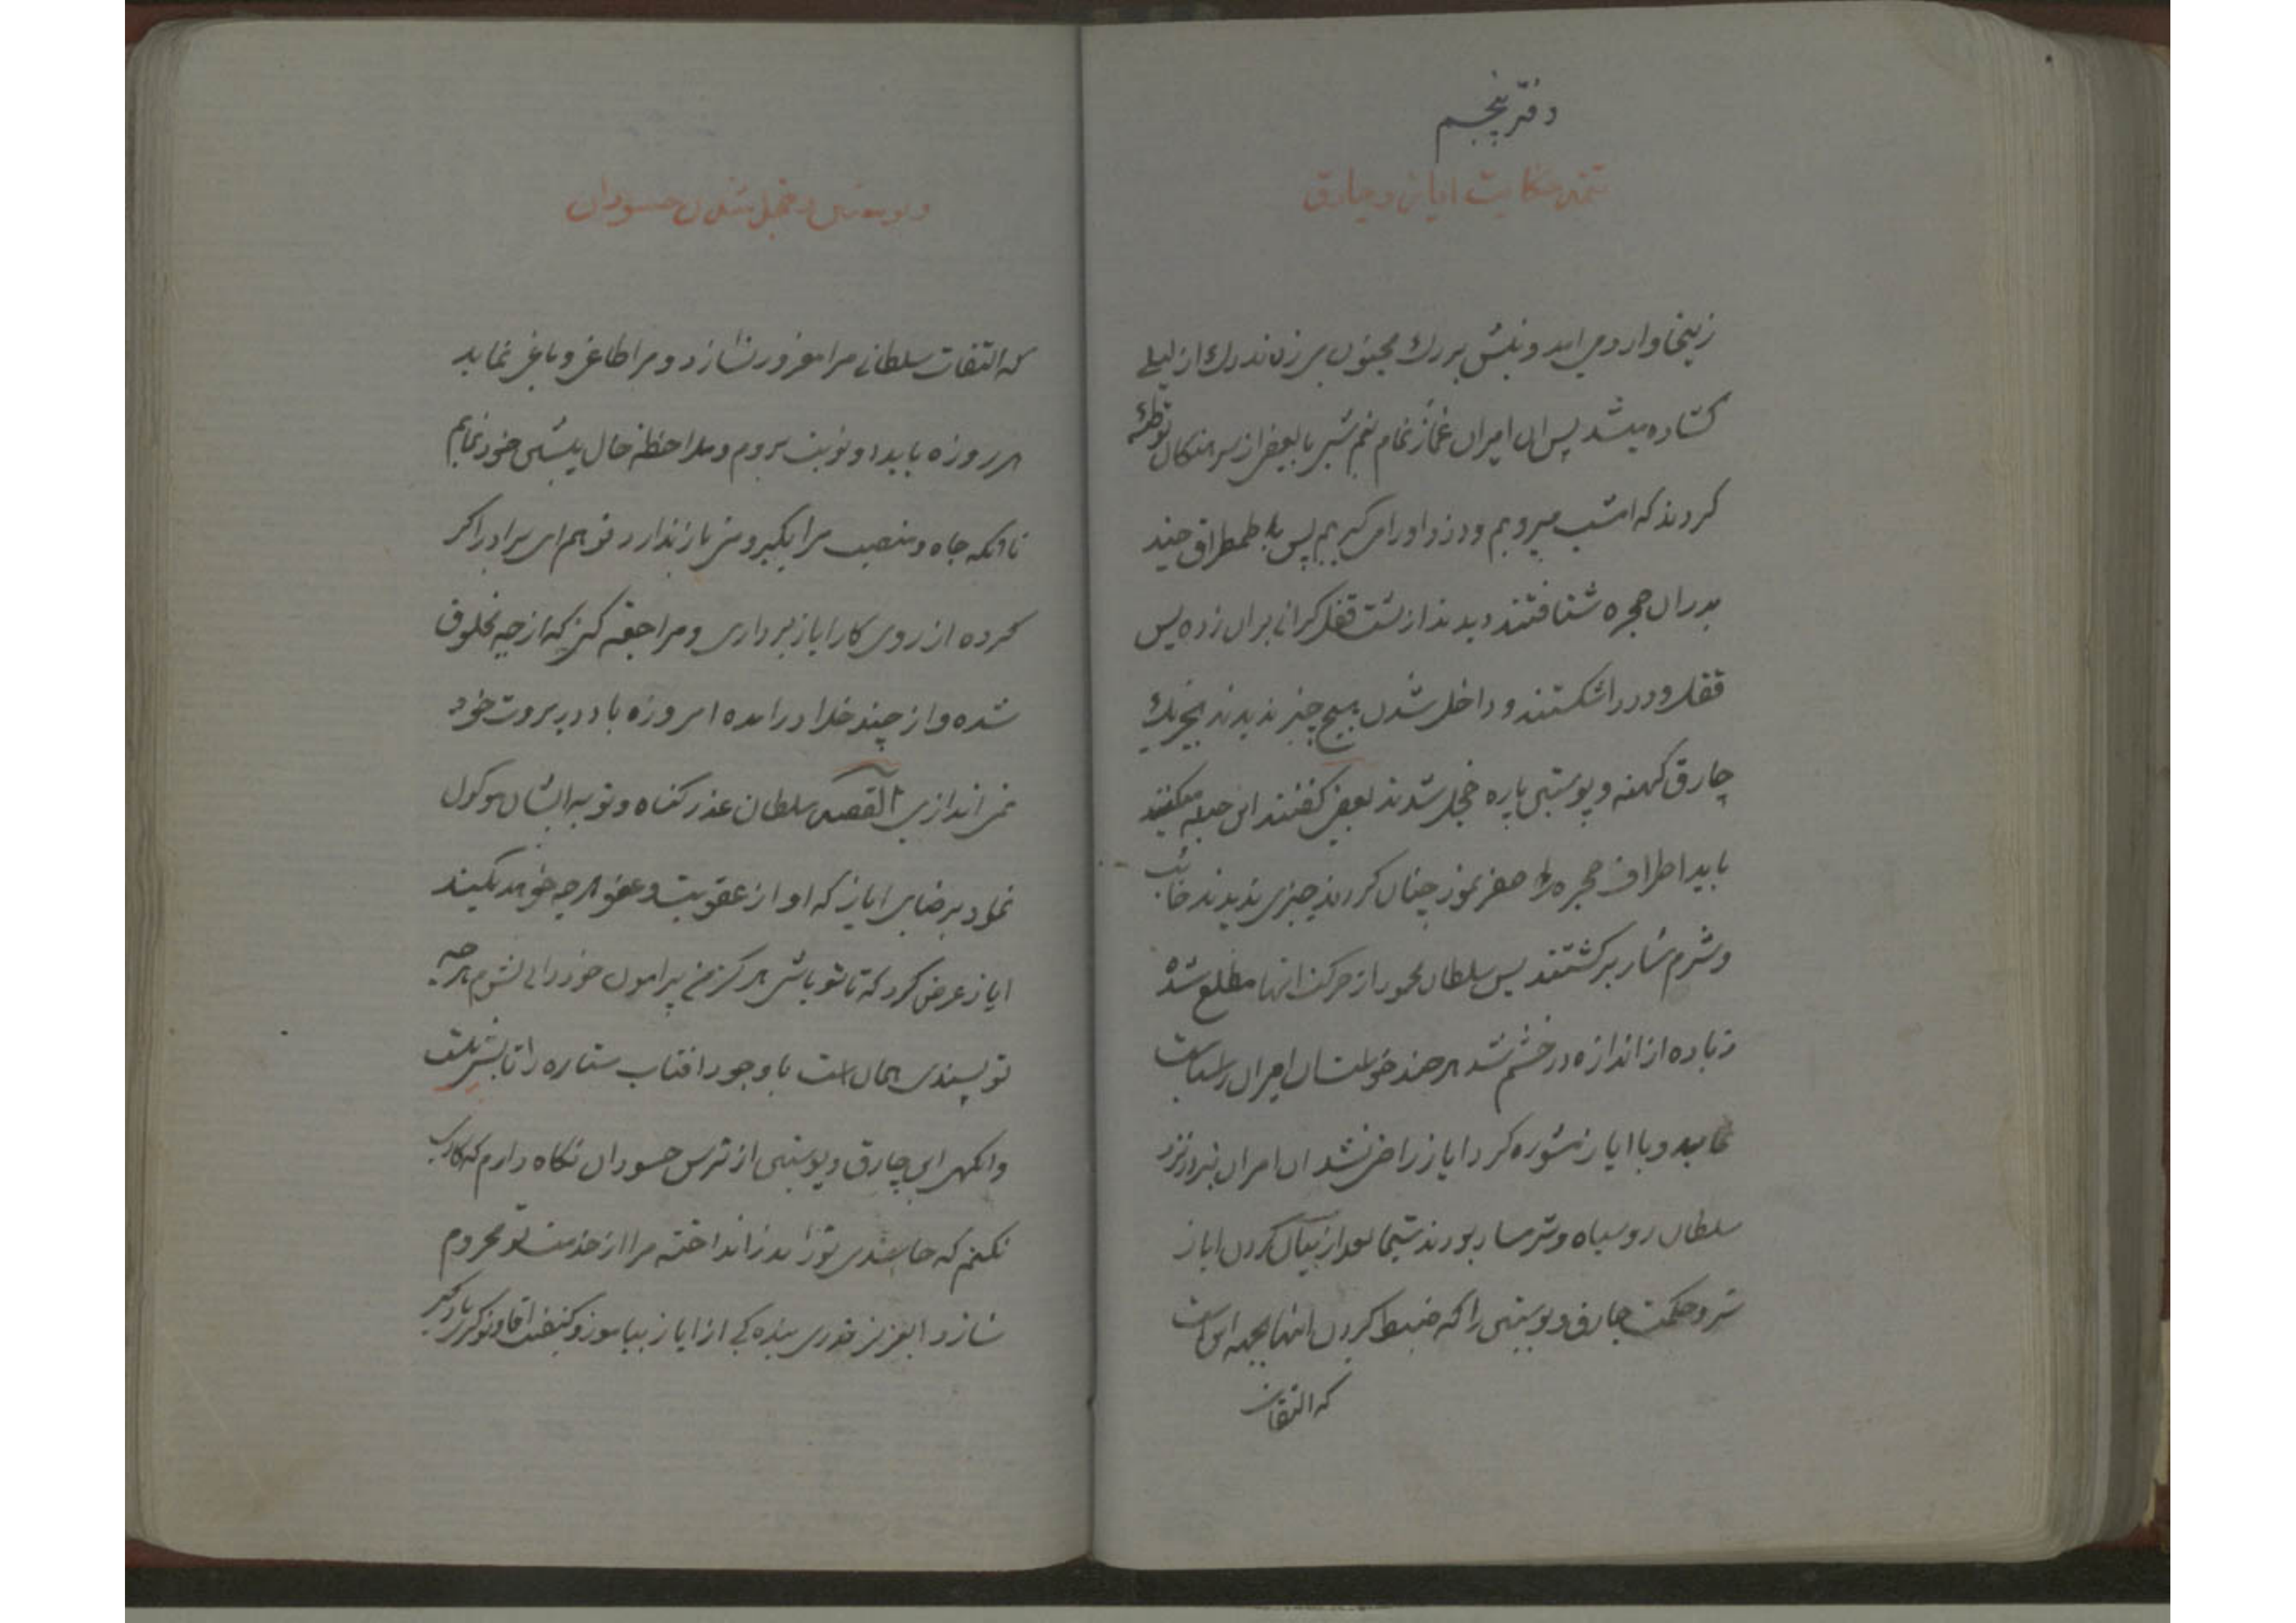 دفتر پنجم
تتمه حکایت ایاز و چارق
زینجا وارد می امد و نیش بر رك مجنون میزدند رك از لیلی
کشاده میشد پس ان امیران غماز تمام نیم شبی با بعضی از سرهنکان توطئه
کردند که امشب میرویم و درزد او را می کیریم پس با طمطراق چند
بدران حجره شتافتند دیدند از پشت قفل کرانی بران زده پس
قفل و در را شکستند و داخل شدن هیچ چیز ندیدند بجز یك
چارق کهنه و پوستین پاره خجل شدند بعضی کفتند این حیله میکنند
باید اطراف حجره را حفر نمود چنان کردند چیزی ندیدند خائب
و شرم سار برکشتند پس سلطان محمود از حرکت انها مطلع شده
زیاده از اندازه در خشم شد هر چند خواست ان امیران را سیاست
نماید و با ایاز مشوره کرد ایاز راضی نشد ان امیران نیز در نزد
سلطان رو سیاه و شرمسار بودند سیما بعد از بیان کردن ایاز
سر و حکمت چارق و پوستین را که ضبط کردن اینها بجهه این است
که التفات
و پوستین و خجل شدن حسودان
که التفات سلطانی مرا مغرور نسازد و مرا طاغی و باغی نماید
هر روزه باید دو نوبت بروم و ملاحظه حال پیشین خود نمایم
تا انکه جاه و منصب مرا یکبرو منی باز ندارد تو هم ای برادر اکر
کرده از روی کار ایاز برداری و مراجعه کنی که از چه مخلوق
شده و از چند خلا در امده امروزه باد در بروت خود
نمی اندازی القصه سلطان عذر کناه و توبه ایشان موکول
نمود برضای ایاز که او از عقوبت و عفو هر چه خواهد بکند
ایاز عرض کرد که تا تو باشی هرکز من پیرامون خودرائی نشوم هر چه
تو پسندی همان است با وجود افتاب ستاره را تابش نیست
وانکهی این چارق و پوستین از ترس حسودان نکاه دارم که کاری
نکنم که حاسدی تورا بدزانداخته مرا از خدمت تو محروم
سازد ایعزیز قدری بنده کی از ایاز بیاموز و کیفیت اقا و نوکری یاد کیر